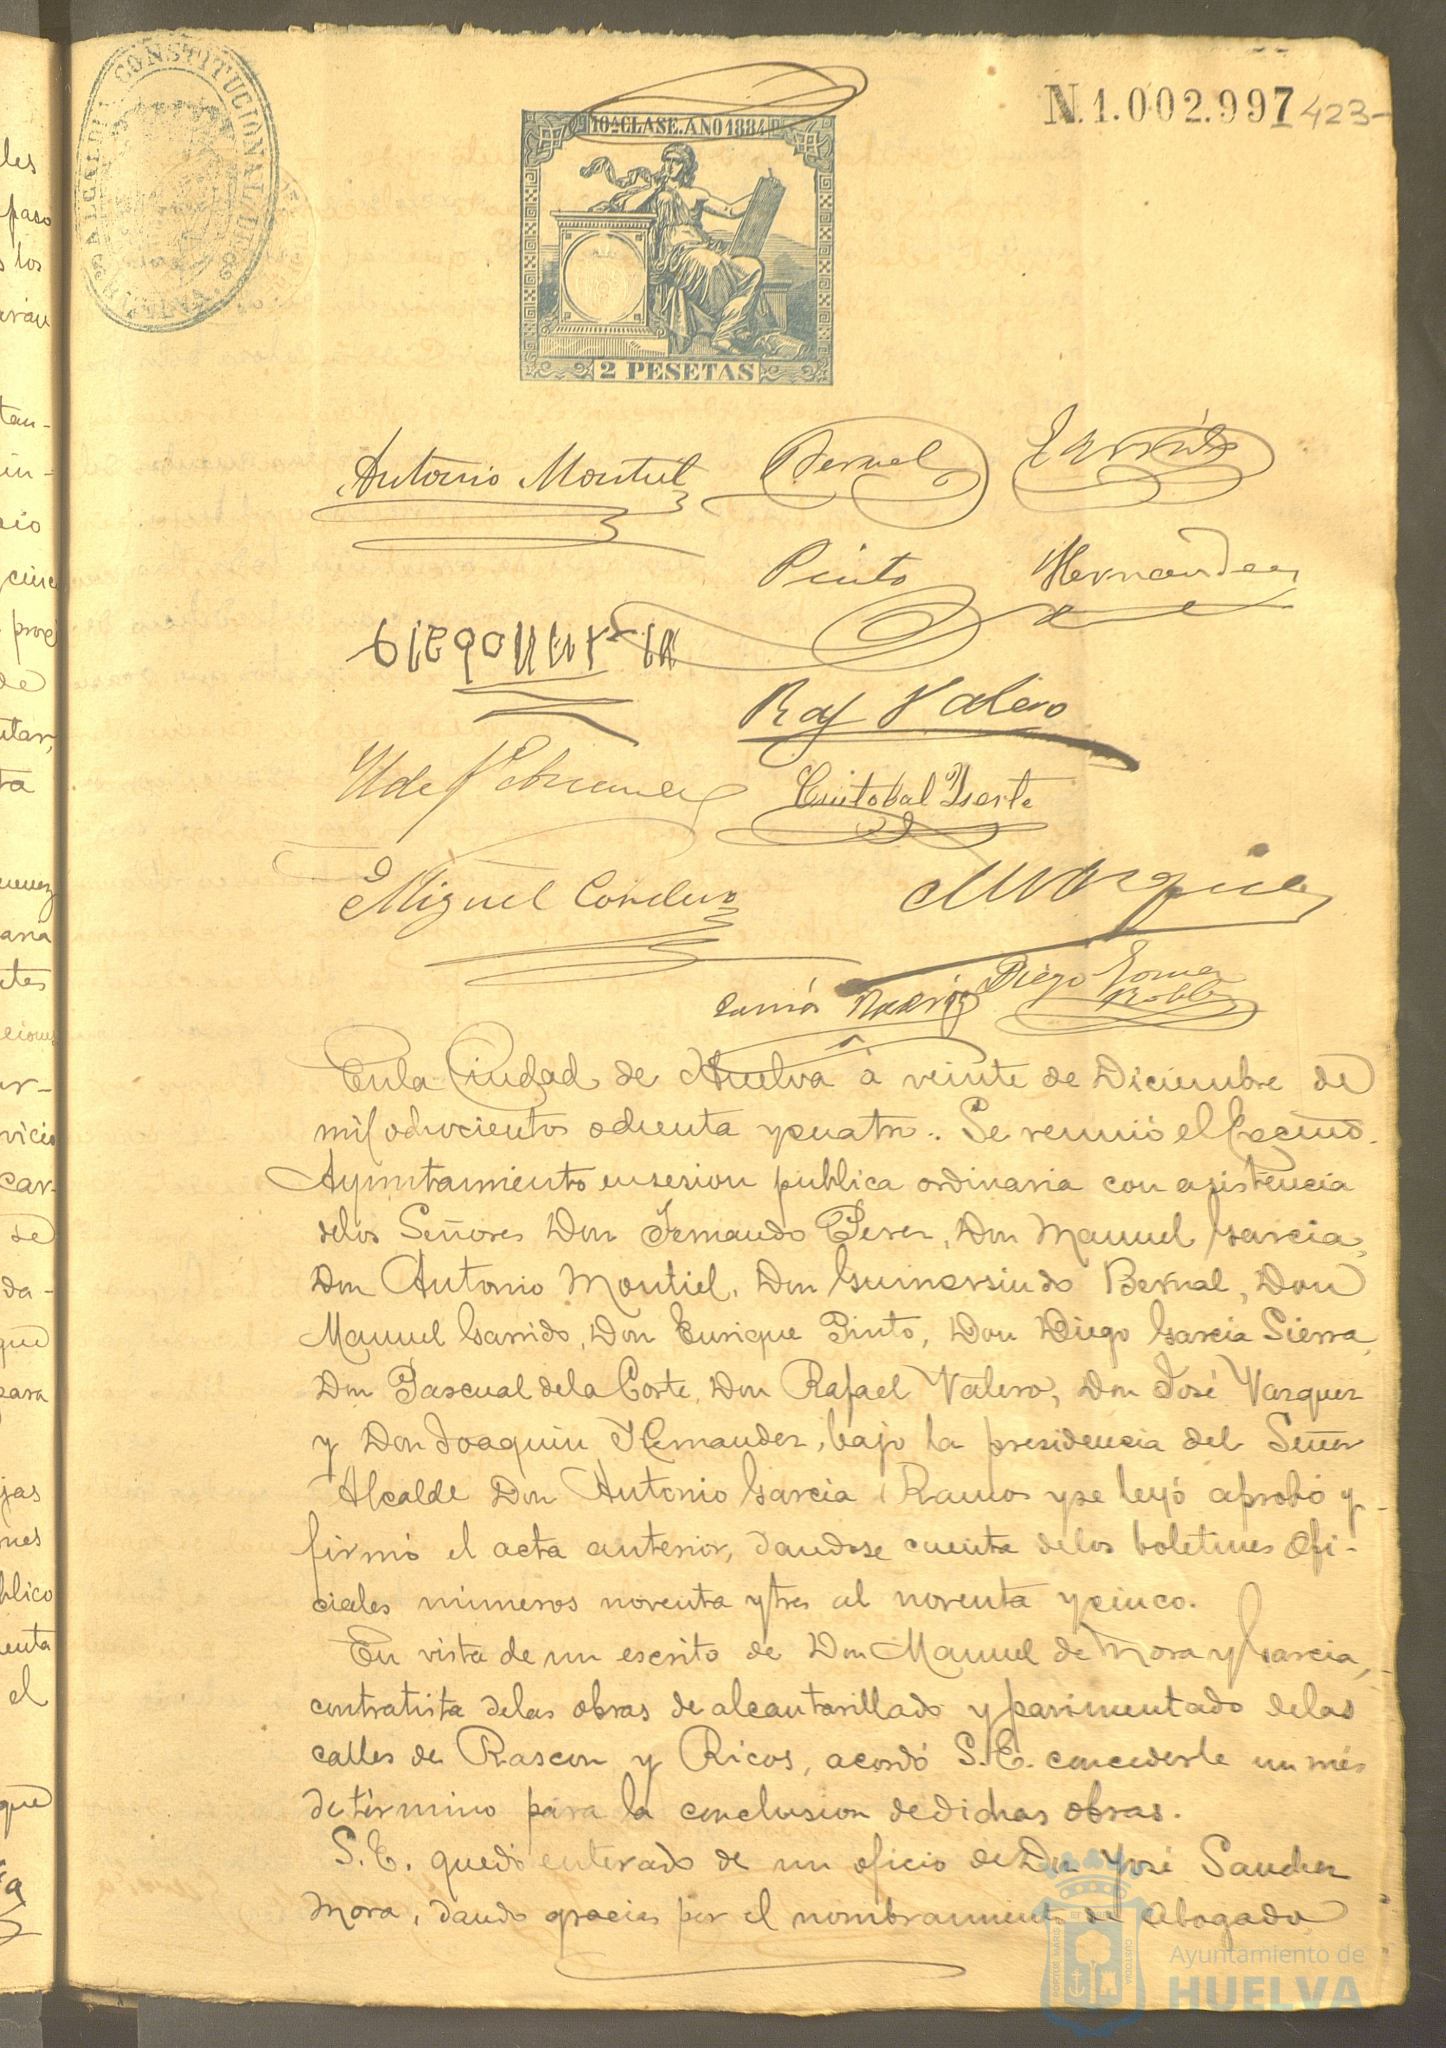 ALCALDIA CONSTITUCIONAL DE HUELVA
N.1.002.997 423-
10ª CLASE. AÑO 1884
2 PESETAS
Antonio Montiel Bernal Garrido
Pinto Hernandez
Raf Valero
Cristobal Yserte
Miguel Cordero
Diego Gomez
Robles
En la Ciudad de Huelva á veinte de Diciembre de
mil ochocientos ochenta y cuatro.. Se reunió el Excmo.
Ayuntamiento en sesion publica ordinaria con asistencia
de los Señores Don Fernando Perez, Don Manuel Garcia,
Don Antonio Montiel, Don Gumersindo Bernal, Don
Manuel Garrido, Don Enrique Pinto, Don Diego Garcia Sierra,
Don Pascual de la Corte, Don Rafael Valero, Don José Vazquez
y Don Joaquin Hernandez, bajo la presidencia del Señor
Alcalde Don Antonio Garcia Ramos y se leyó aprobó y
firmó el acta anterior, dandose cuenta de los boletines Ofi-
ciales números noventa y tres al noventa y cinco.
En vista de un escrito de Don Manuel de Mora y Garcia,
contratista de las obras de alcantarillado y pavimentado de las
calles de Rascon y Ricos, acordó S.E. concederle un mes
de término para la conclusion de dichas obras.
S.E. quedó enterado de un oficio de Don José Sanchez
Mora, dando gracias por el nombramiento de Abogado
Ayuntamiento de
HUELVA